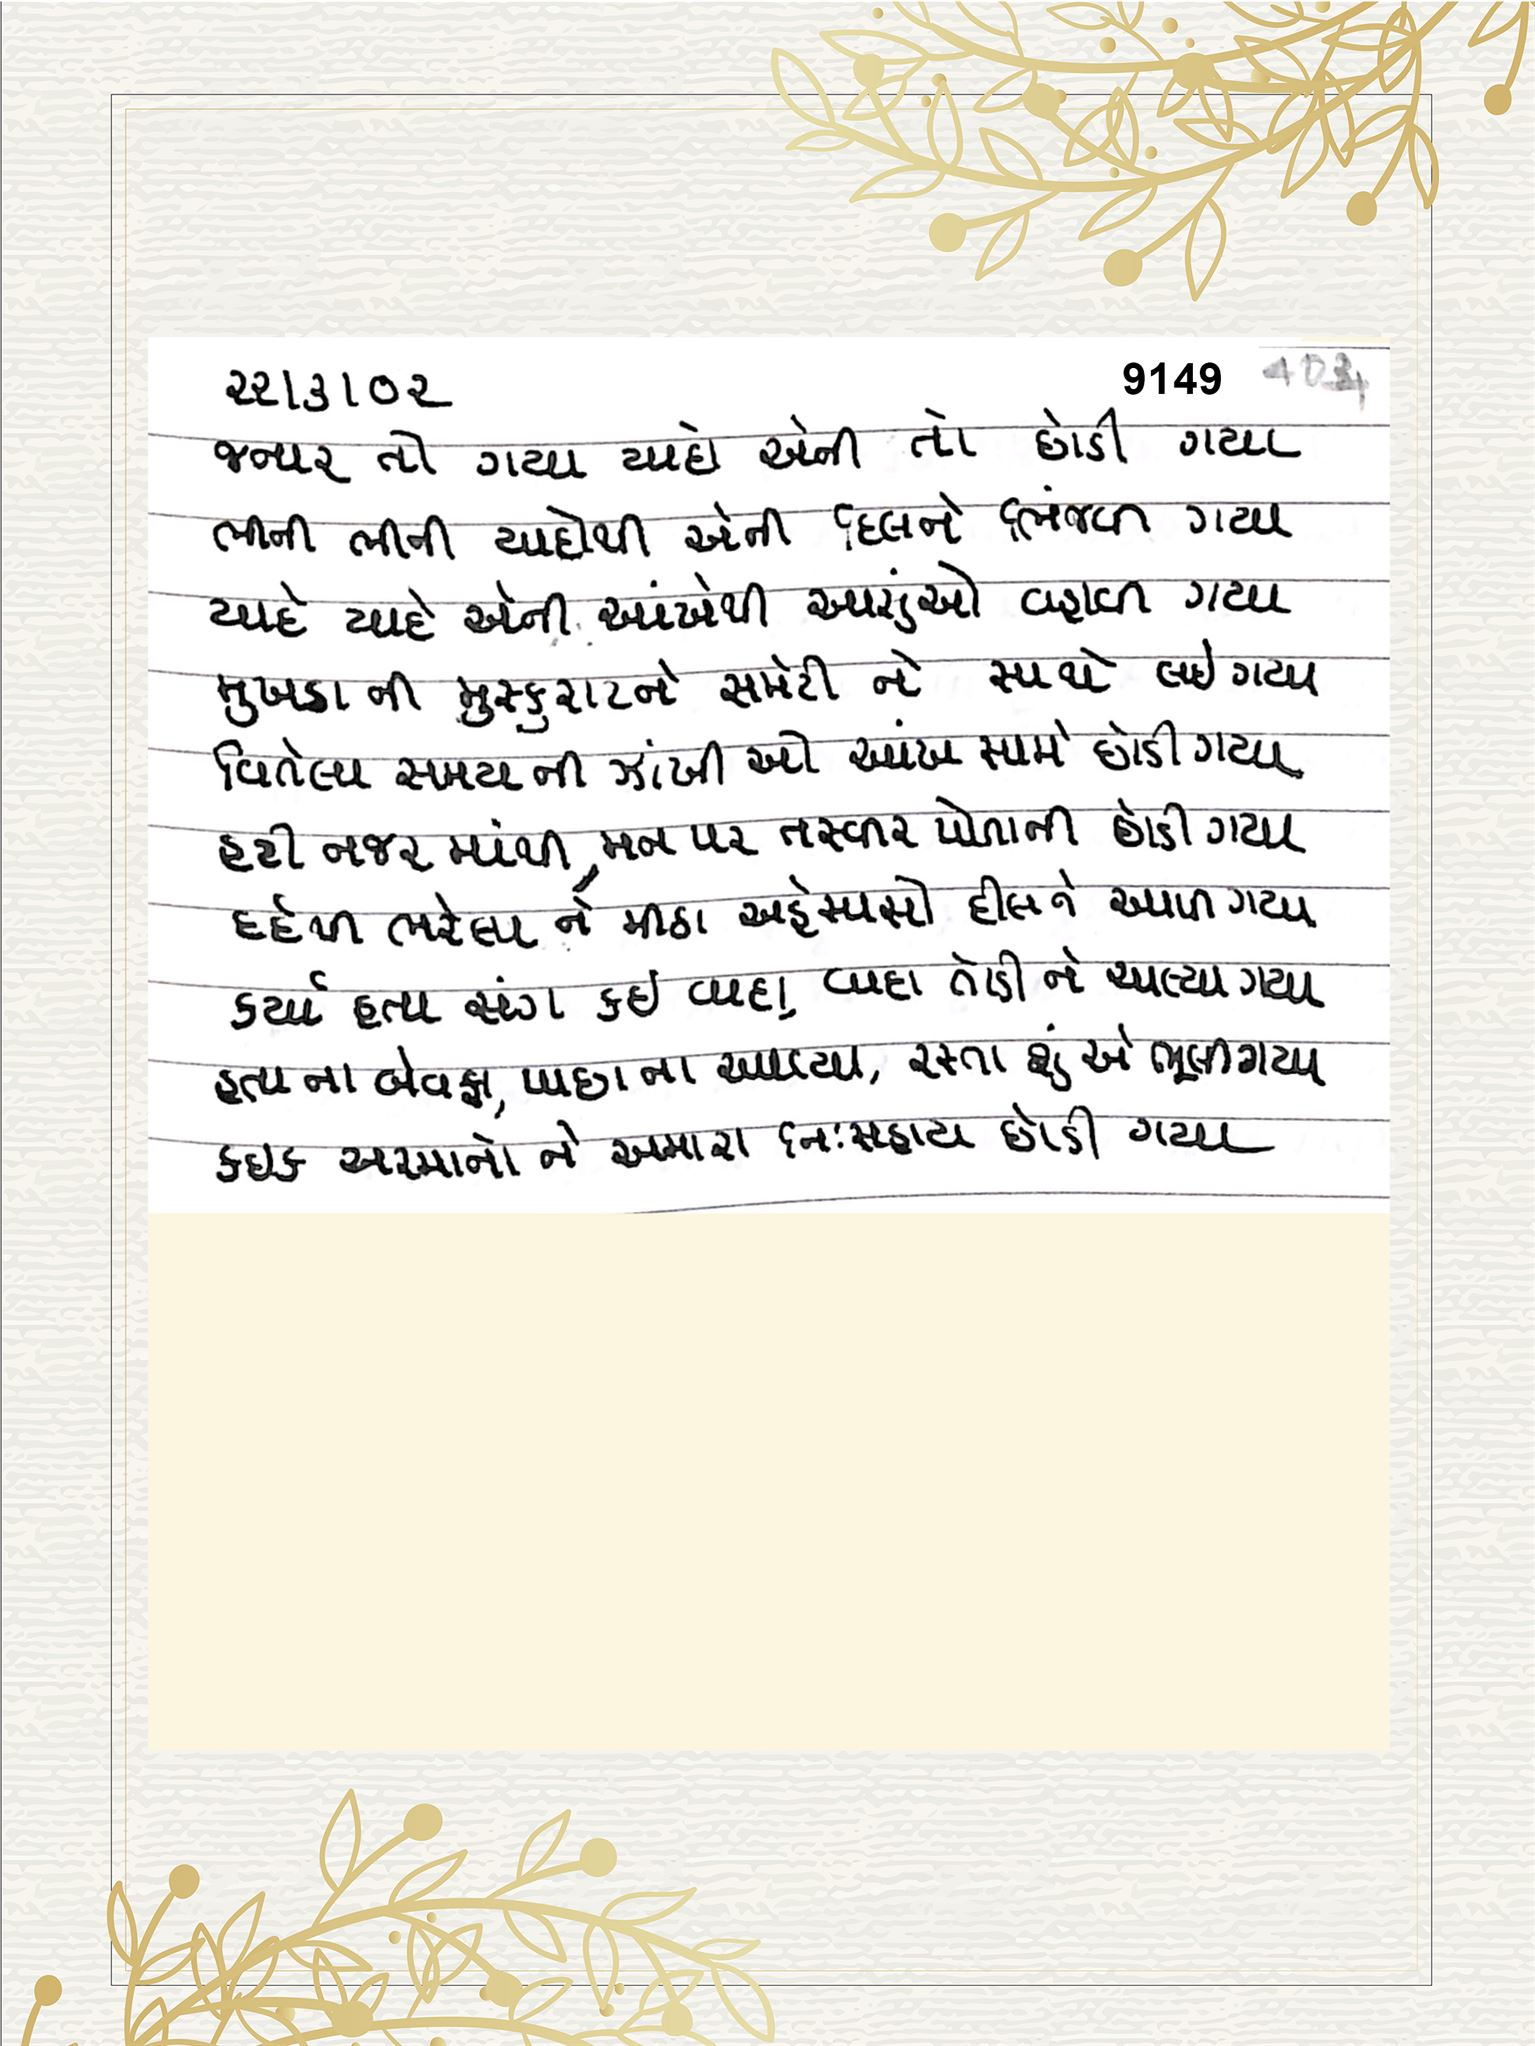 ૨૨।૩।૦૨
9149
જનાર તો ગયા યાદો એની તો છોડી ગયા
ભીની ભીની યાદોથી એની દિલને ભિંજવી ગયા
યાદે યાદે એની આંખેથી આશુંઓ વહાવી ગયા
મુખડા ની મુસ્કુરાટને સમેટી ને સાથે લઇ ગયા
વિતેલા સમય ની ઝાંખી ઓ આંખ સામે છોડી ગયા
હટી નજર માંથી, મન પર તસ્વીર પોતાની છોડી ગયા
દર્દથી ભરેલા ને મીઠા અહેસાસો દીલ ને આપી ગયા
કર્યા હતા સંગ કઇ વાદા, વાદા તોડી ને ચાલ્યા ગયા
હતા ના બેવફા, પાછા ના આવ્યા, રસ્તા શું એ ભૂલી ગયા
કઇક અરમાનો ને અમારા નિઃસહાય છોડી ગયા